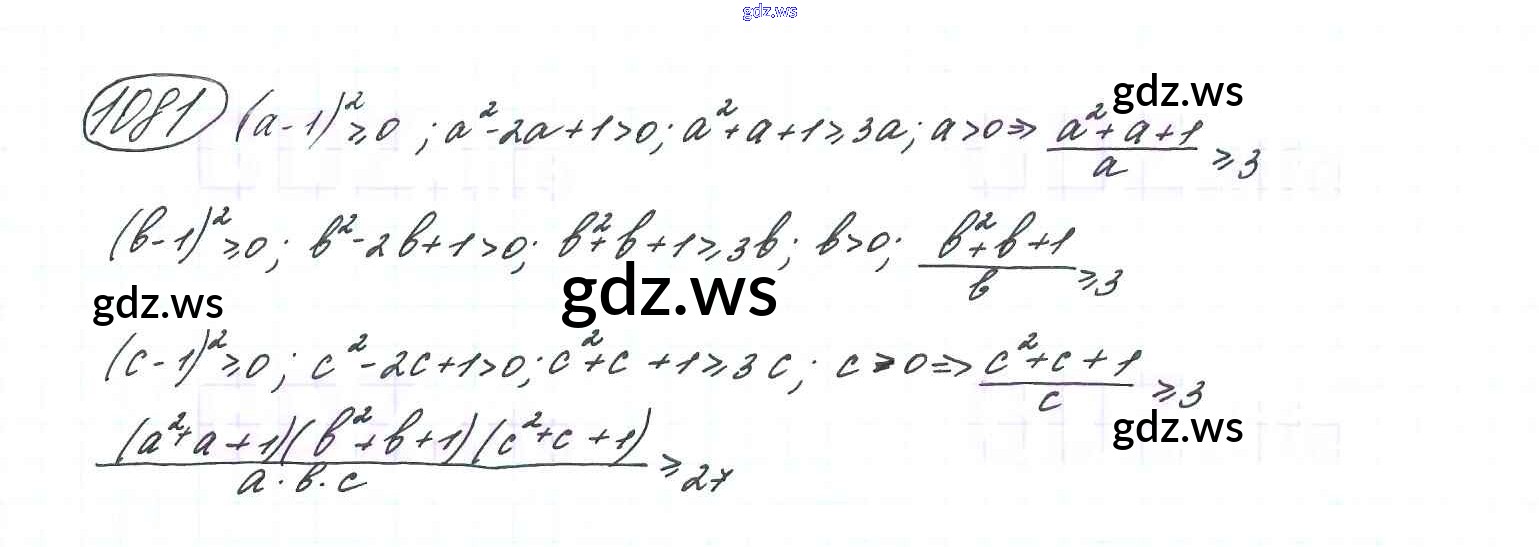 gdz.ws
1081 (a-1)²≥0 ; a²-2a+1>0; a²+a+1≥3a; a>0⇒ (a²+a+1)/a ≥3
gdz.ws
(b-1)²≥0; b²-2b+1>0; b²+b+1≥3b; b>0; (b²+b+1)/b ≥3
gdz.ws gdz.ws
(c-1)²≥0; c²-2c+1>0; c²+c+1≥3c; c>0⇒ (c²+c+1)/c ≥3
gdz.ws
(a²+a+1)(b²+b+1)(c²+c+1)/a·b·c ≥27